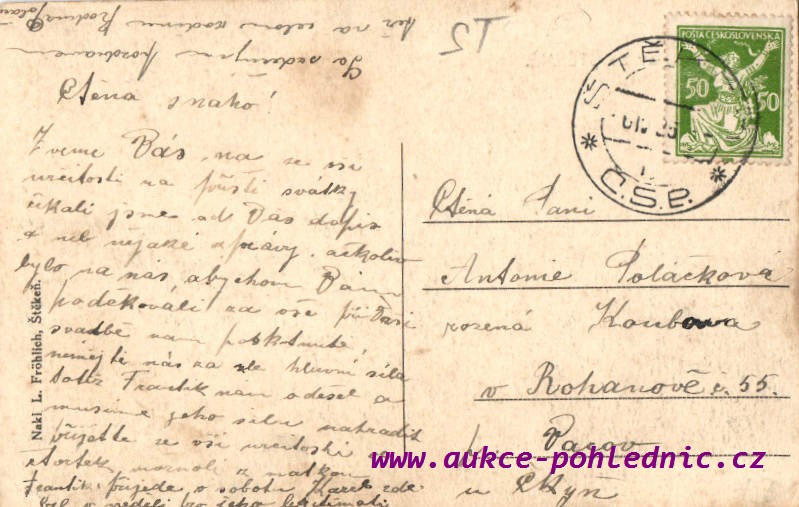 též na celou rodinu Rodina
Se srdečným pozdravem
Ctěná snaho!
Zveme Vás, na se vší
určitostí na příští svátky
čekali jsme od Vás dopis
neb nějaké zprávy, ačkoliv
bylo na nás, abychom Vám
poděkovali za vše při Vaší
svadbě nám poskytnuté,
nemějte nás za zle hlavní síla
totiž Frantík nám odešel a
musíme jeho sílu nahradit
Přijeďte ze vší určitostí
z matkou
Frantík přijede v sobotu Karel zde
byl v neděli
Nakl L. Fröhlich, Štěkeň.
POŠTA ČESKOSLOVENSKÁ
50 50
ŠTĚK
Č.S.P.
Ctěná Paní
Antonie Poláčková
rozená Koubova
v Rohanově č. 55.
p. Vacov
u Čkyň
www.aukce-pohlednic.cz